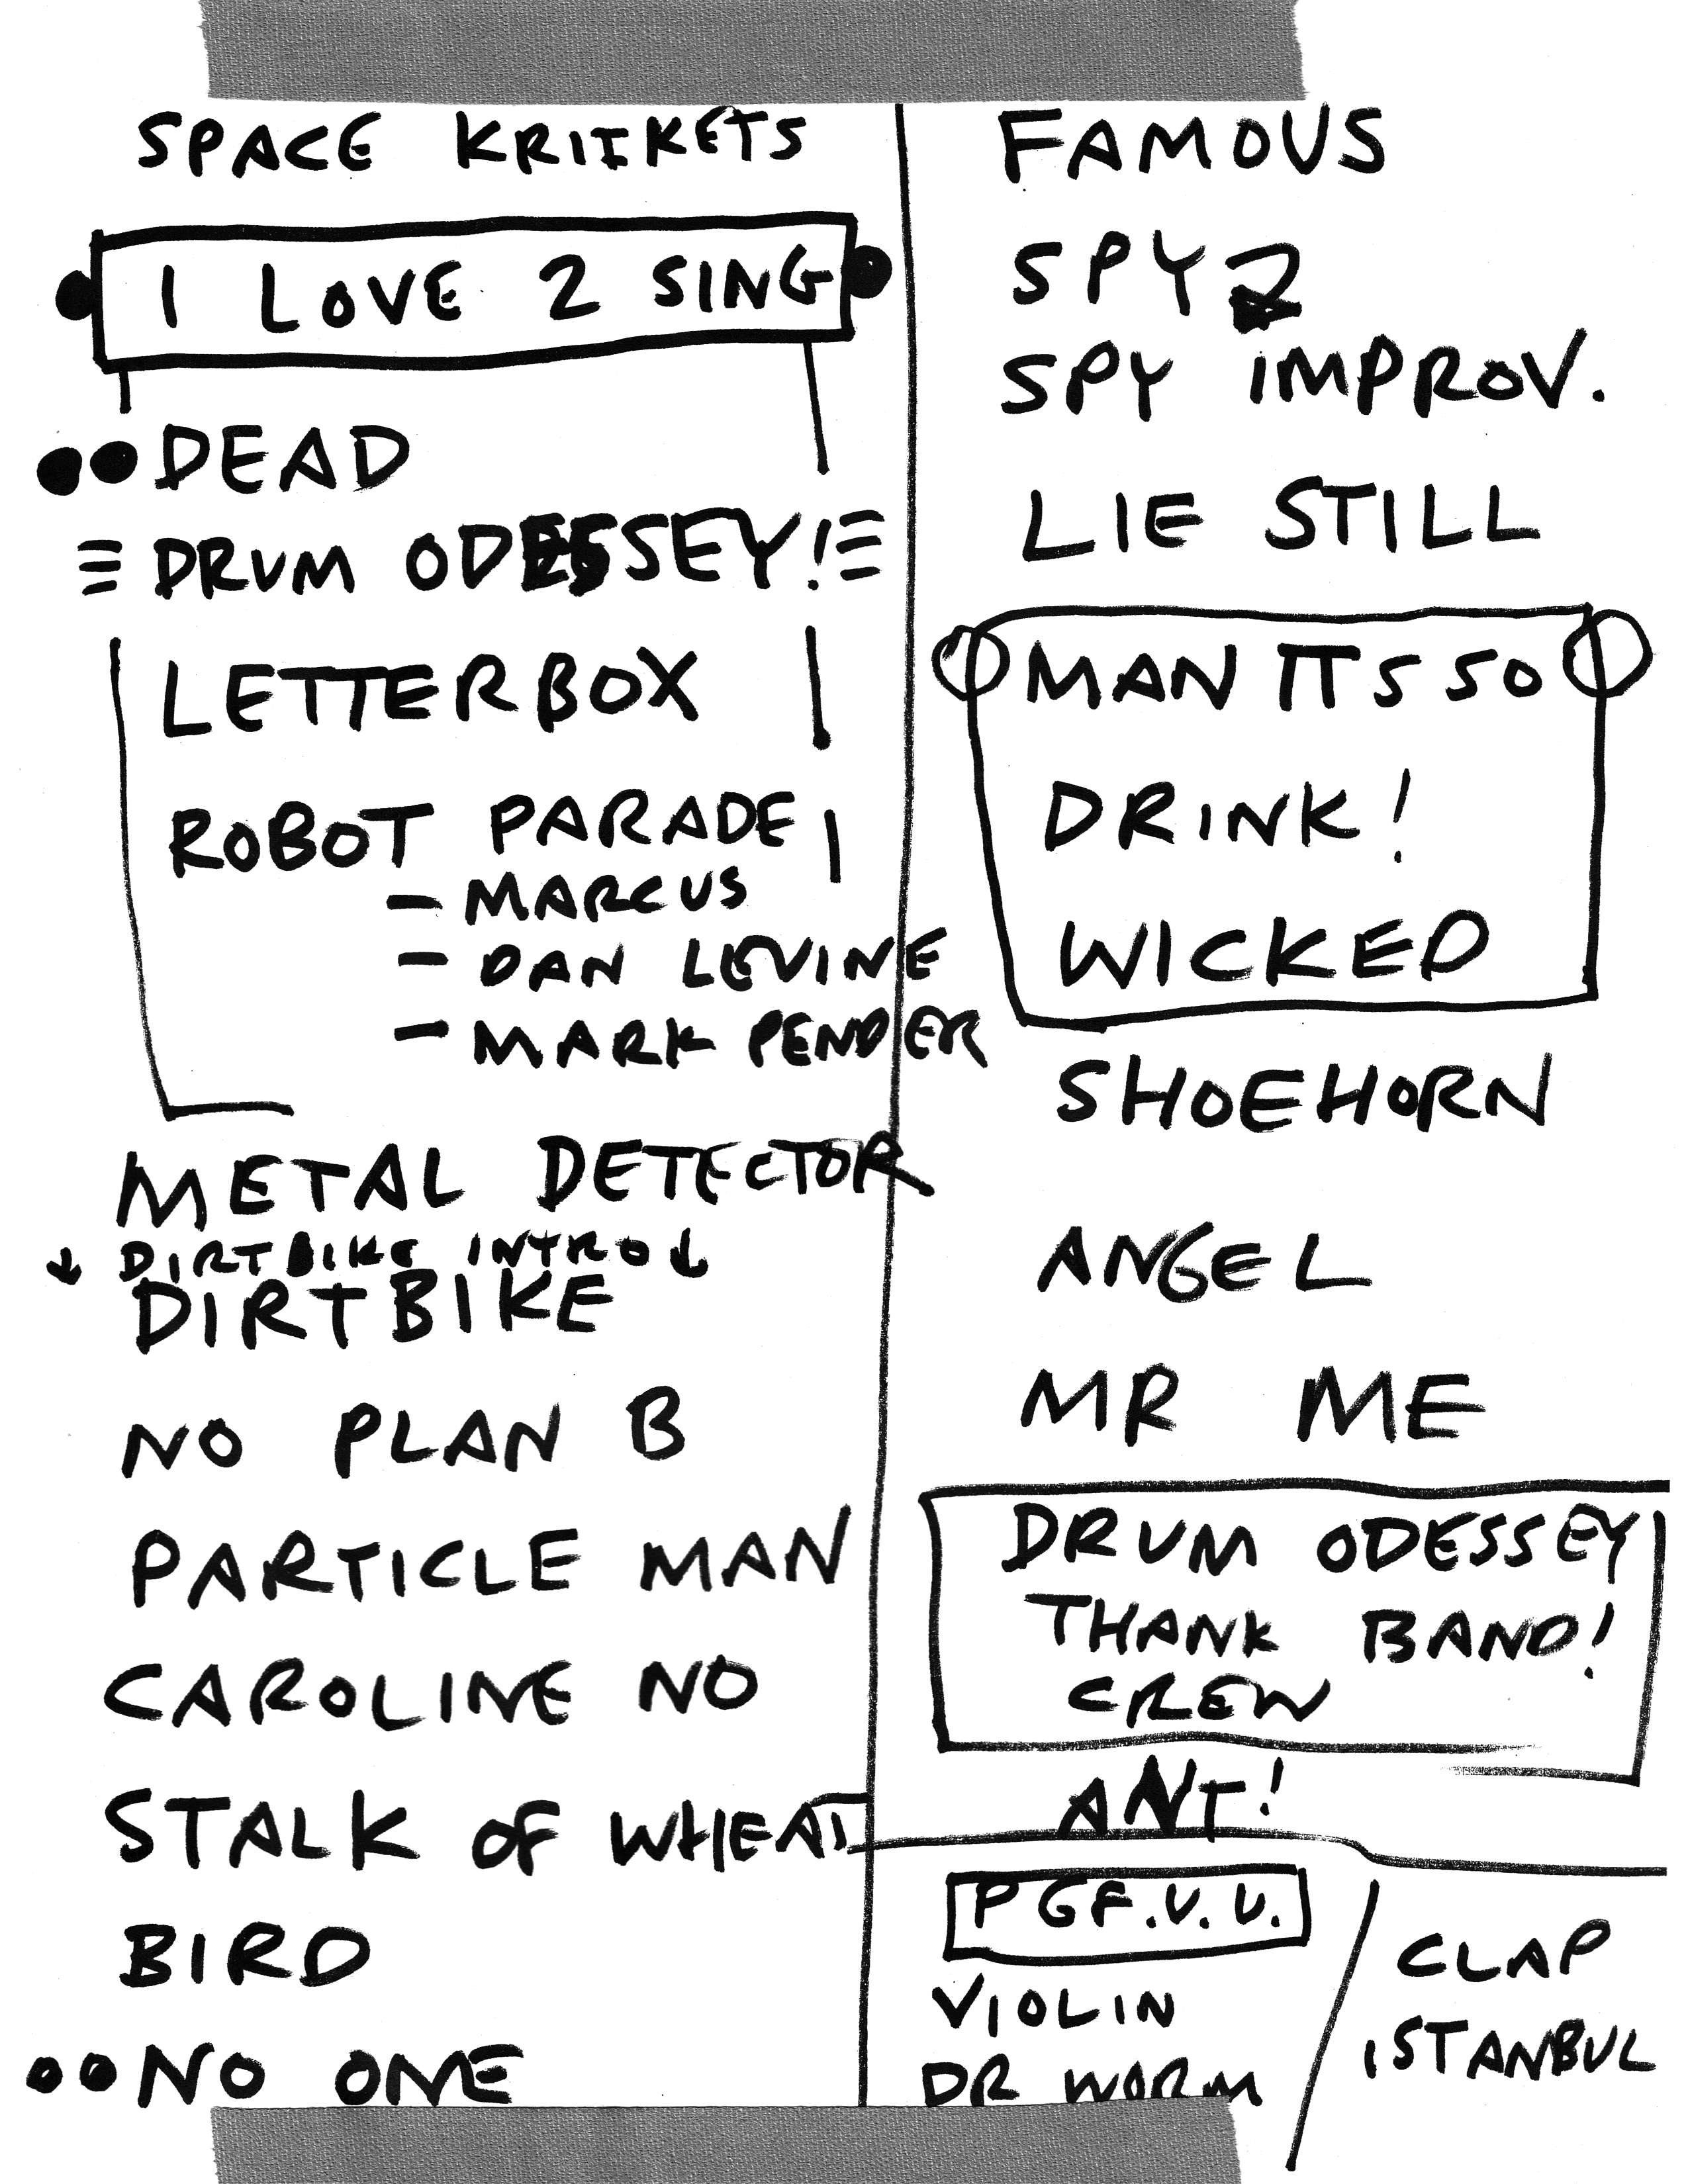 SPACE KRIIKETS
I LOVE 2 SING
DEAD
DRUM ODESSEY!
LETTERBOX
ROBOT PARADE
– MARCUS
– DAN LEVINE
– MARK PENDER
METAL DETECTOR
↓ DIRTBIKE INTRO ↓
DIRTBIKE
NO PLAN B
PARTICLE MAN
CAROLINE NO
STALK OF WHEAT
BIRD
NO ONE
FAMOUS
SPY 2
SPY IMPROV.
LIE STILL
MAN ITS SO
DRINK!
WICKED
SHOEHORN
ANGEL
MR ME
DRUM ODESSEY
THANK BAND!
CREW
ANT!
P G F. V. V.
VIOLIN
DR WORM
CLAP
ISTANBUL